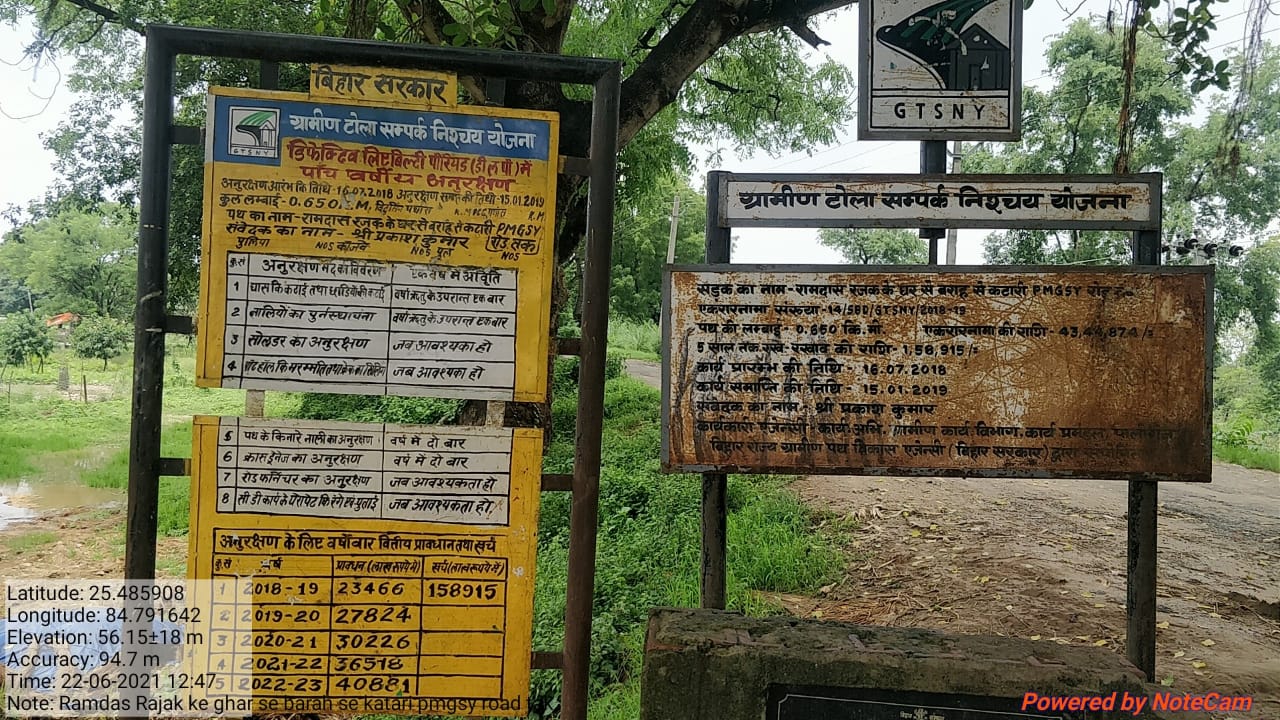 बिहार सरकार
GTSNY
ग्रामीण टोला सम्पर्क निश्चय योजना
डिफेक्टिव लिएबिल्टी पीरियड (डी.ल.पी) में
पाँच वर्षीय अनुरक्षण
अनुरक्षण आरंभ कि तिथि - 16.07.2018 अनुरक्षण समाप्त की तिथी - 15.01.2019
कुल लम्बाई - 0.650
पथ का नाम - रामदास रजक के घर से बराह से कटारी PMGSY
संवेदक का नाम - श्री प्रकाश कुमार रोड तक
पुलिया NOS कॉजवे NOS पुल NOS
क्र.सं अनुरक्षण मद का विवरण एक वर्ष में आवृति
1 घास कि कटाई तथा झाडियों की कटाई वर्षा ऋतु के उपरान्त एक बार
2 नालियों का पुर्नस्थापना वर्षा ऋतु के उपरान्त एक बार
3 सोल्डर का अनुरक्षण जब आवश्यका हो
4 पॉट हॉल कि मरम्मति तथा जब आवश्यका हो
5 पथ के किनारे नाली का अनुरक्षण वर्ष में दो बार
6 क्रास ड्रेनेज का अनुरक्षण वर्ष में दो बार
7 रोड फर्निचर का अनुरक्षण जब आवश्यकता हो
8 सी डी कार्य के पैरापेट कि रंगाई एवं पुताई जब आवश्यकता हो
अनुरक्षण के लिए वर्षोवार वित्तीय प्रावधान तथा खर्च
क्र.सं वर्ष प्रावधान (लाख रूपये में) खर्च (लाख रूपये में)
1 2018-19 23466 158915
2 2019-20 27824
3 2020-21 30226
4 2021-22 36518
5 2022-23 40881
GTSNY
ग्रामीण टोला सम्पर्क निश्चय योजना
सड़क का नाम - रामदास रजक के घर से बराह से कटारी PMGSY रोड
एकरारनामा संख्या - 14/SBD/GTSNY/2018-19
पथ की लम्बाई - 0.650 कि.मी. एकरारनामा की राशि - 43,44,874/=
5 साल तक रख-रखाव की राशि - 1,58,915/=
कार्य प्रारम्भ की तिथि - 16.07.2018
कार्य समाप्ति की तिथि - 15.01.2019
संवेदक का नाम - श्री प्रकाश कुमार
कार्यकारी एजेन्सी - कार्य अभि. ग्रामीण कार्य विभाग, कार्य प्रमंडल,
बिहार राज्य ग्रामीण पथ विकास एजेन्सी (बिहार सरकार) द्वारा
Latitude: 25.485908
Longitude: 84.791642
Elevation: 56.15±18 m
Accuracy: 94.7 m
Time: 22-06-2021 12:47
Note: Ramdas Rajak ke ghar se barah se katari pmgsy road
Powered by NoteCam